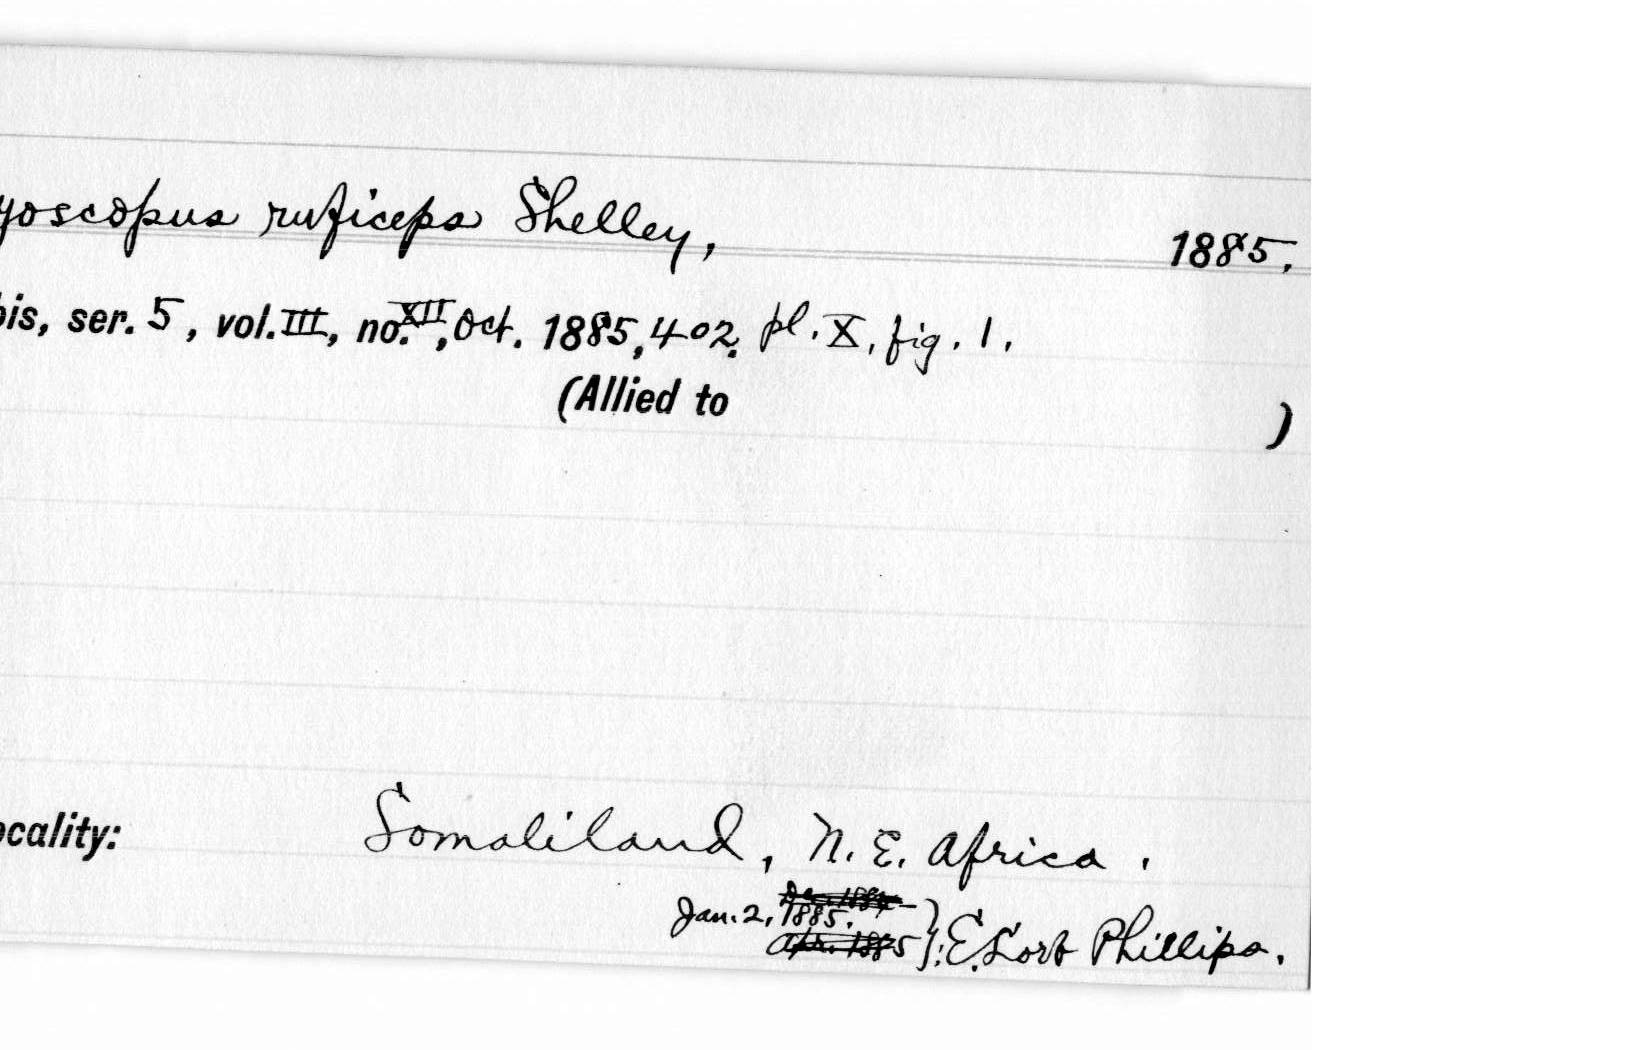 yoscopus ruficeps Shelley, 1885.
bis, ser. 5, vol. III, no. XII, Oct. 1885, 402. pl. X, fig. 1.
(Allied to )
ocality: Somaliland, N. E. Africa.
Dec. 1884
Jan. 2, 1885.
Apr. 1885 }: E. Lort Phillips.